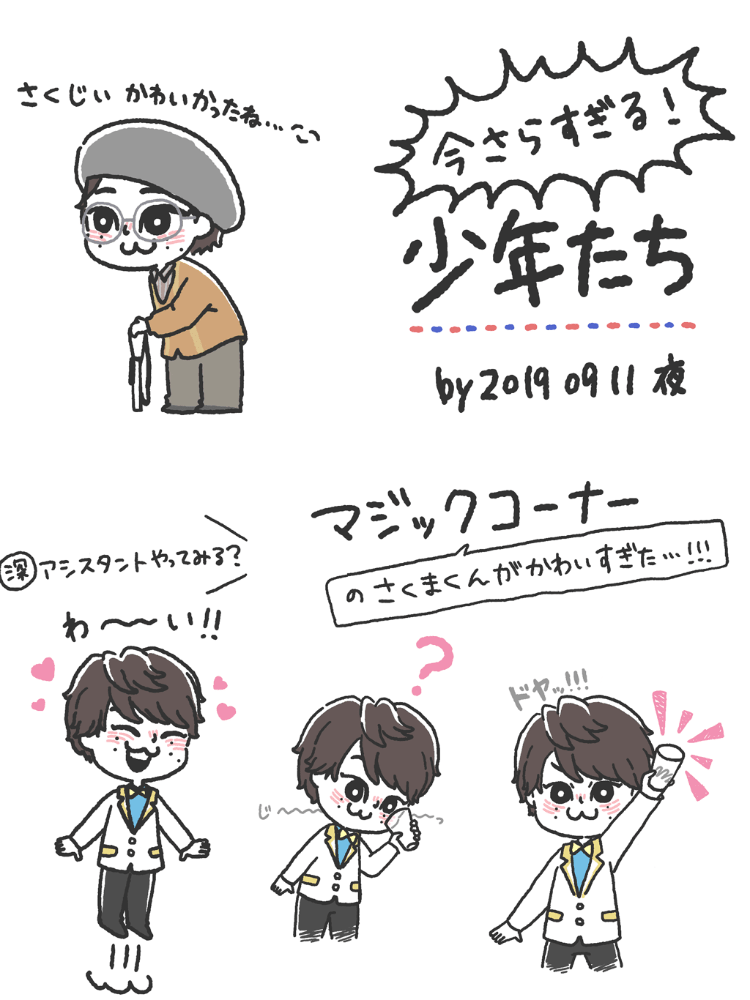 さくじい かわいかったね…
今さらすぎる!
少年たち
by 2019 09 11 夜
マジックコーナー
のさくまくんがかわいすぎた…!!!
深 アシスタントやってみる?
わ〜〜い!!
?
ドヤッ!!!
じ〜〜〜〜っ